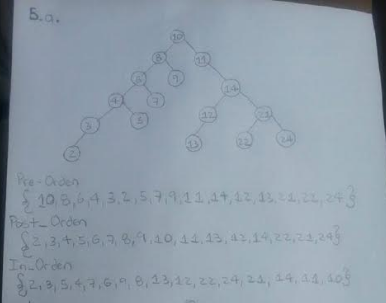 5.a.
10
8 11
6 9 14
4 7 12 21
3 5 13 22 24
2
Pre-Orden
{10,8,6,4,3,2,5,7,9,11,14,12,13,21,22,24}
Post_Orden
{2,3,4,5,6,7,8,9,10,11,13,12,14,22,21,24}
In_Orden
{2,3,5,4,7,6,9,8,13,12,22,24,21,14,11,10}